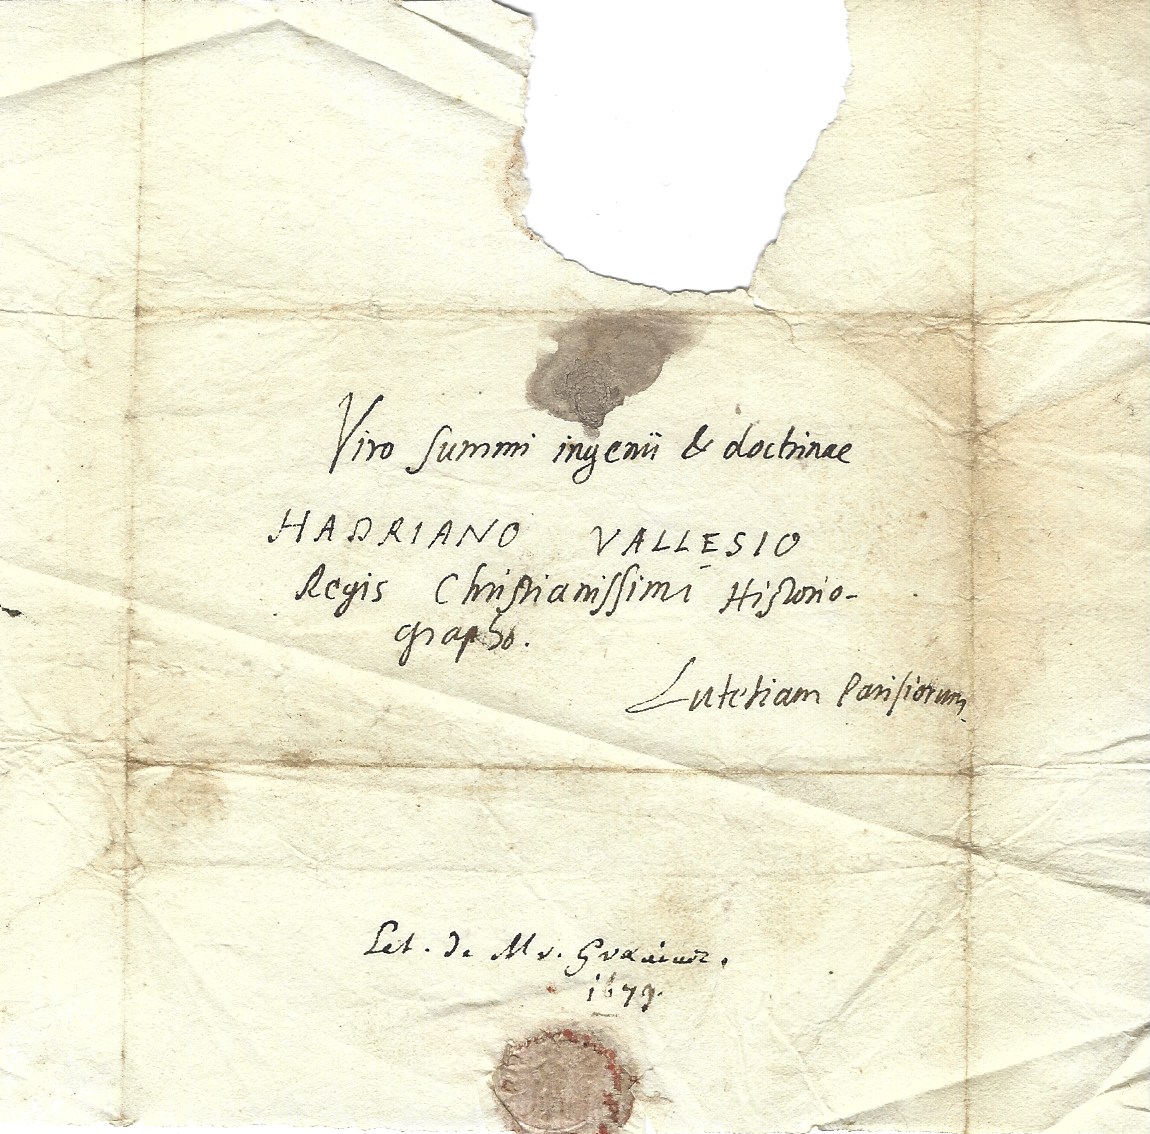 Viro summi ingenii & doctrinae
HADRIANO VALLESIO
Regis Christianissimi Historio-
grapho.
Lutetiam Parisiorum
Let. de Mr.
1679.